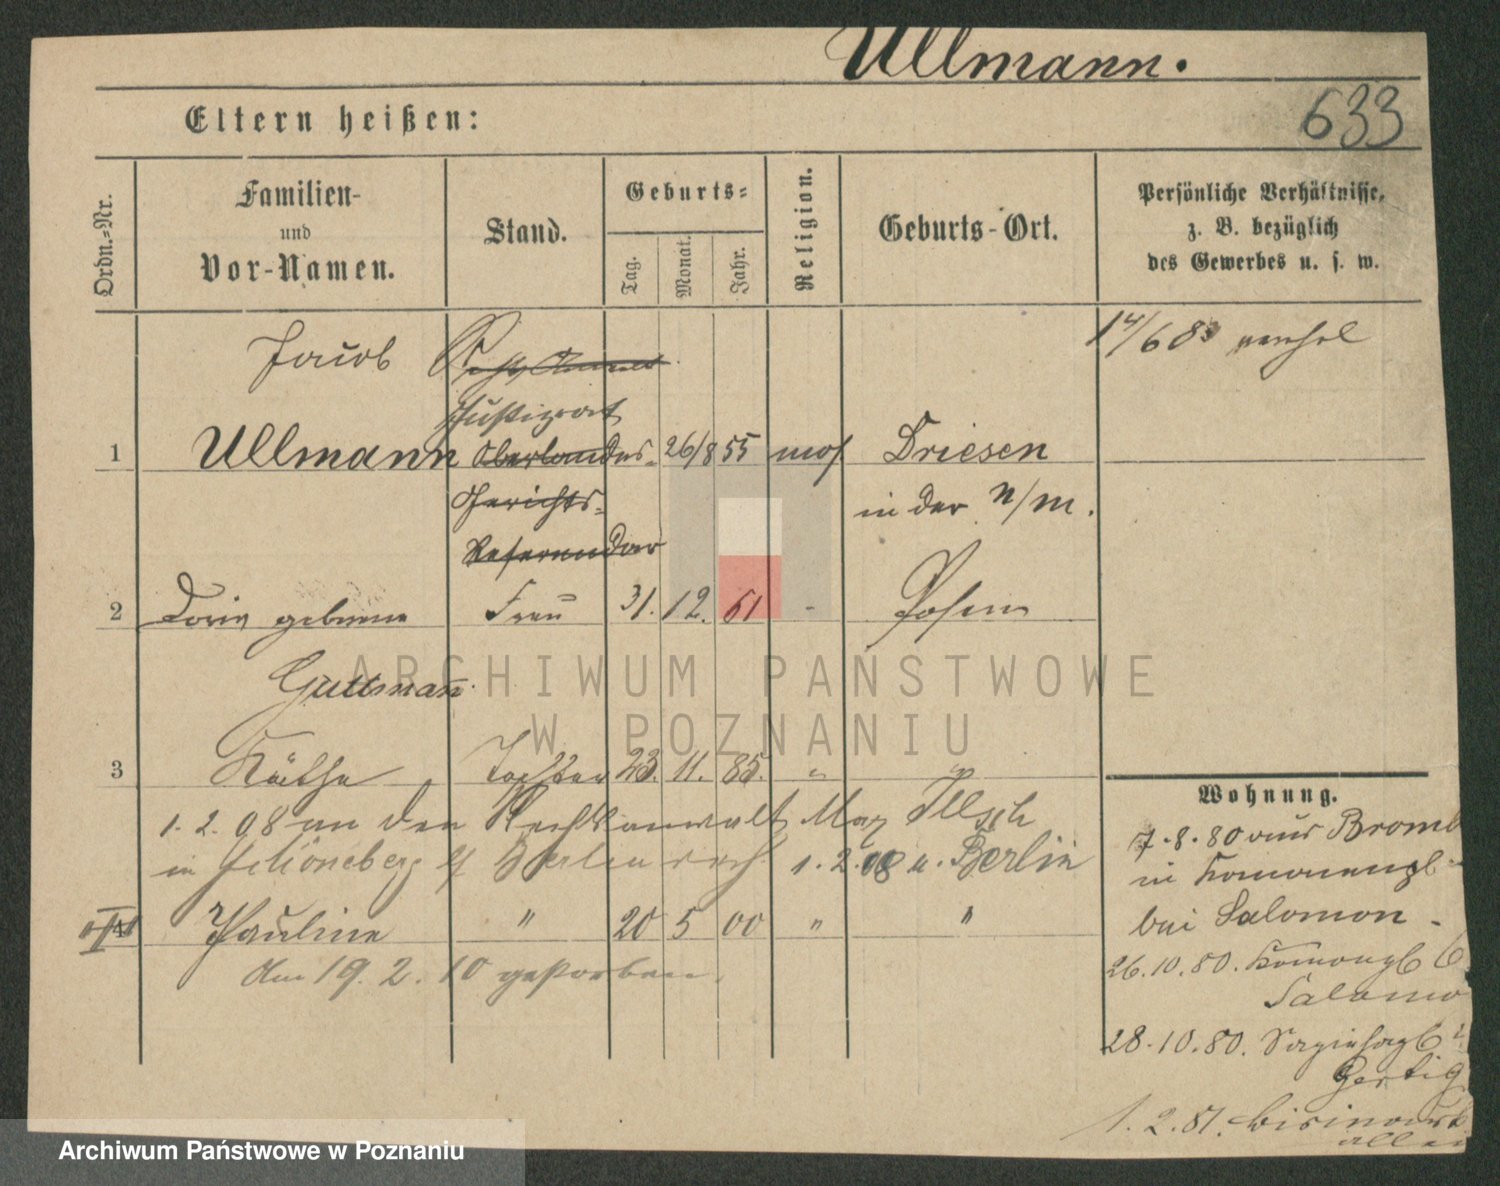 Ullmann.
633
Eltern heißen:
Ordn.-Nr.
Familien-
und
Vor-Namen.
Stand.
Geburts-
Tag.
Monat.
Jahr.
Religion.
Geburts-Ort.
Persönliche Verhältnisse,
z. B. bezüglich
des Gewerbes u. s. w.
Jacob
14/6 83
Justizrat
1 Ullmann Oberlandes- 26/8 55 mos Driesen
Gerichts- in der N/M.
Referendar
2 Doris geborene Frau 31. 12. 61 - Posen
Guttmann.
3 Käthe Tochter 23. 11. 85. " "
1. 2. 08 an den Rechtsanwalt Max Illsch
in Schöneberg b/ Berlin 1. 2. 08 n. Berlin
4 Pauline " 20 5 00 " "
Am 19. 2. 10 gestorben.
Wohnung.
7.8.80 aus Bromb
in
bei Salomon
26.10.80.
Salomo
28.10.80.
1.2.81.
ARCHIWUM PAŃSTWOWE
W POZNANIU
Archiwum Państwowe w Poznaniu